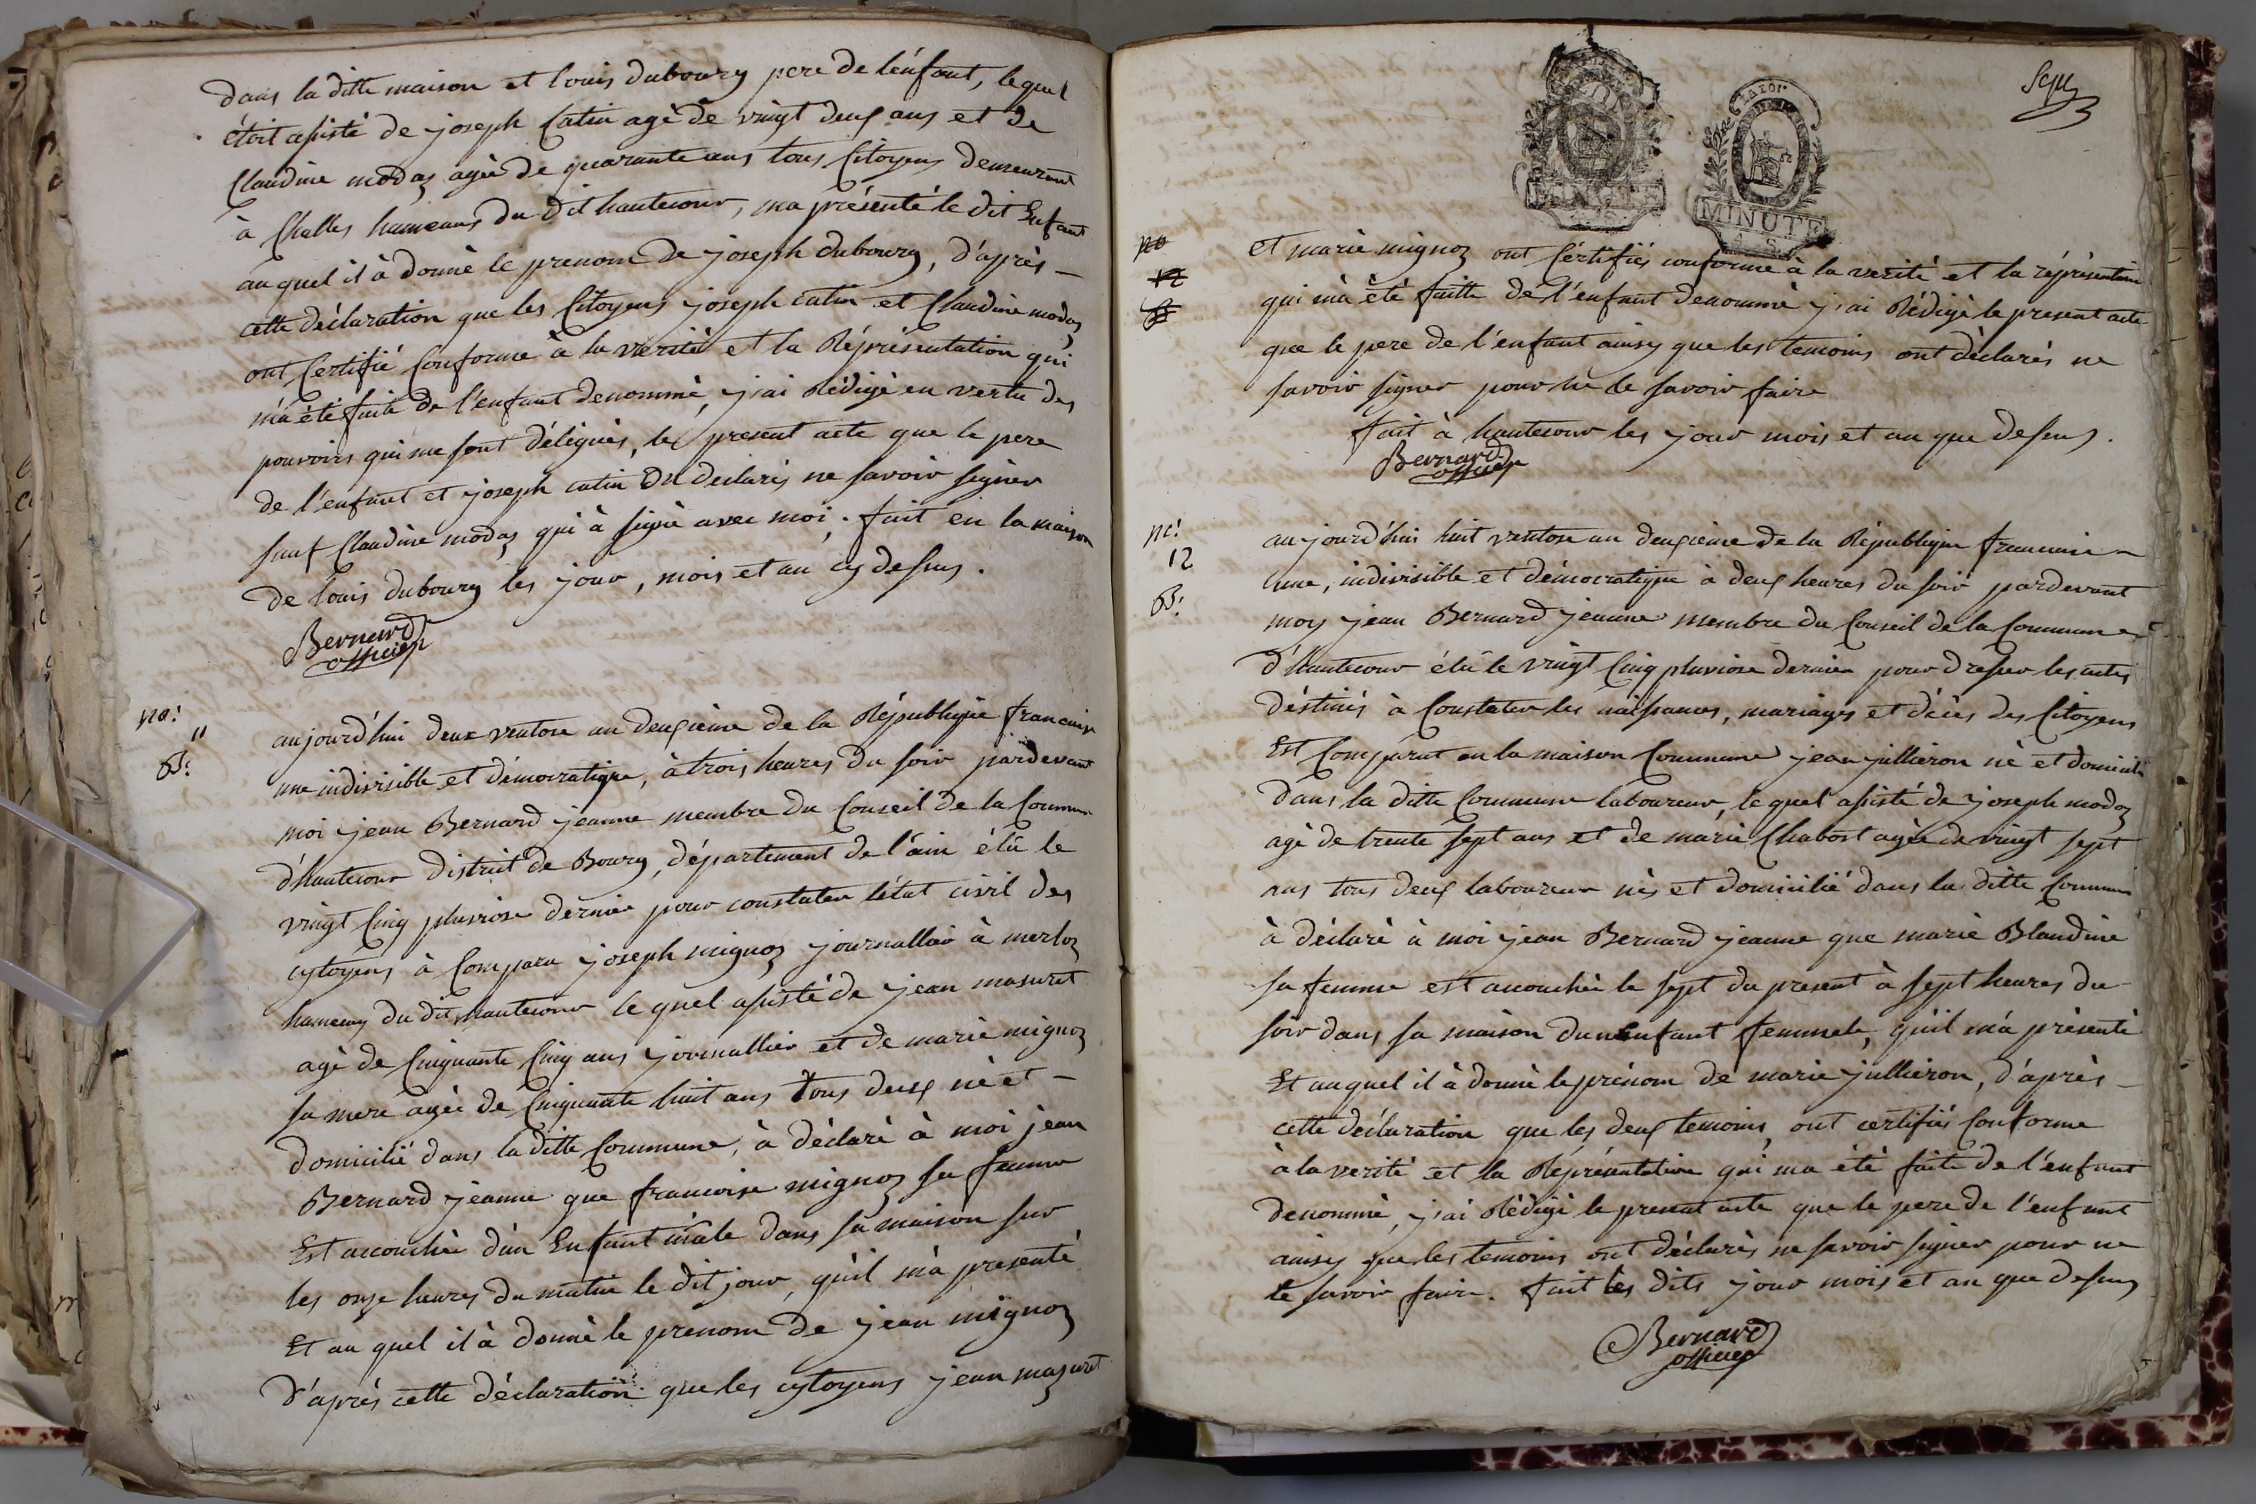 dans la ditte maison et louis dubourg pere de l'énfant, lequel
étoit assisté de joseph Catin agé de vingt deux ans et de
Claudine modas agée de quarante ans tous Citoyens demeurant
à Challes hameaux du dit hautecour, ma présenté le dit Enfant
auquel il à donné le prenom de joseph dubourg, d'aprés
cette déclaration que les Citoyens joseph catin et Claudine modas
ont Certifié Conforme à la verité et la Réprésentation qui
m'a été faite de l'enfant denommé, j'ai Rédigé en vertu des
pouvoirs qui me sont délégués, le present acte que le pere
de l'enfant et joseph catin déclarés ne savoir signer
sauf Claudine modas qui à signé avec moi. fait en la maison
de louis dubourg les jour, mois et an cy dessus.
Bernard
officier
no:
11
B:
aujourd'hui deux ventose an deuxième de la République francaise
une indivisible et démocratique, à trois heures du soir pardevant
moi jean Bernard jeaune membre du Conseil de la Commune
d'hautecour district de Bourg, département de l'ain élû le
vingt Cinq pluviose dernier pour constater l'état civil des
cytoyens à Comparu joseph mignoz journallier à merloz
hameau du dit hautecour le quel assisté de jean masuret
agé de Cinquante Cinq ans journallier et de marie mignoz
sa mere agée de Cinquante huit ans tous deux né et
domicilié dans la ditte Commune, à déclaré à moi jean
Bernard jeaune que francoise mignoz sa femme
Est accouchée d'un Enfant mâle dans sa maison sur
les onze heures du matin le dit jour, qu'il m'à presenté
Et au quel il à donné le prenom de jean mignoz
D'aprés cette déclaration que les cytoyens jean mazuret
Sept
no
12
B
et marie mignoz ont Cértifiés conforme à la verité et la réprésentation
qui m'à été faitte de l'enfant denommé j'ai Rédigé le present acte
que le pere de l'enfant ainsy que les temoins ont déclarés ne
savoir signer pour ne le savoir faire
fait à hautecour les jour mois et an que dessus.
Bernard
officier
no:
12
B:
aujourd'hui huit ventose an deuxième de la République francaise
une, indivisible et démocratique à deux heures du soir pardevant
moy jean Bernard jeaune membre du Conseil de la Commune
d'hautecour élû le vingt Cinq pluviose dernier pour dresser les actes
déstinés à Constater les naissances, mariages et décés des Citoyens
Est Comparut en la maison Commune jean jullieron né et domicilié
dans la ditte Commune laboureur, le quel assisté de joseph modoz
agé de trente sept ans et de marie Chabost agée de vingt sept
ans tous deux laboureur nés et domicilié dans la ditte Commune
à déclaré à moi jean Bernard jeaune que marie Blandine
sa femme est accouchée le sept du present à sept heures du
soir dans sa maison dun enfant femmele, qu'il m'a présenté
Et auquel il à donné le prénom de marie jullieron, d'aprés
cette déclaration que les deux temoins, ont certifiés Conforme
à la verité et la Réprésentation qui ma été faite de l'enfant
denommé, j'ai Rédigé le present acte que le pere de l'enfant
ainsy que les temoins ont déclarés ne savoir signer pour ne
le savoir faire. fait les dits jour mois et an que dessus
Bernard
officier
MINUTE